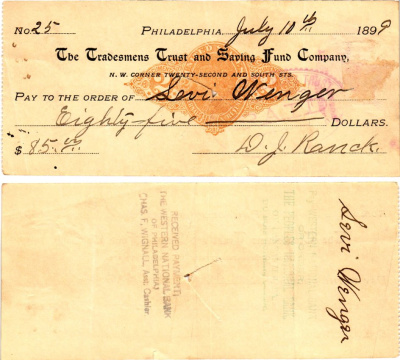 No. 25 Philadelphia, July 10th 1899
The Tradesmens Trust and Saving Fund Company,
N. W. CORNER TWENTY-SECOND AND SOUTH STS.
PAY TO THE ORDER OF Levi Wenger
Eighty five DOLLARS.
$85.00 D. J. Ranck.
RECEIVED PAYMENT
THE WESTERN NATIONAL BANK
OF PHILADELPHIA
CHAS. F. WIGNALL, Asst. Cashier
Levi Wenger